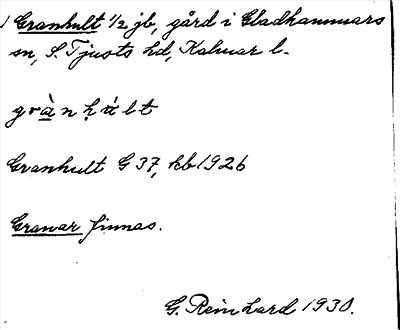 Granhult 1/2 jb, gård i Gladhammars
sn, S. Tjusts hd, Kalmar l.
grànhált
Granhult G 37, kb 1926
Granar finnas.
G. Reinhard 1930.